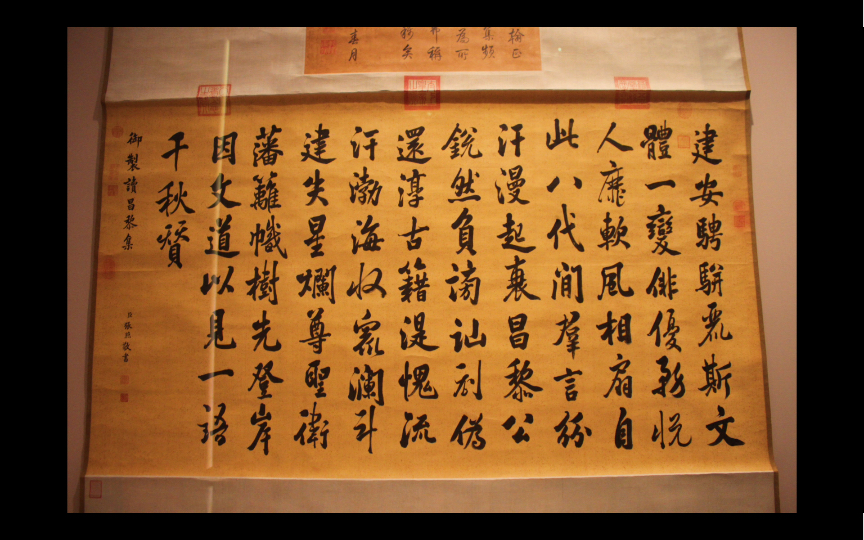 為所
春月
建安騁駢麗斯文
體一變俳優務悅
人靡軟風相扇自
此八代間羣言紛
汗漫起衰昌黎公
銳然負謗訕偽
還淳古籍湜愧流
汗渤海收瀾斗
建失星爛尊聖衛
藩籬幟樹先登岸
因文道以見一語
千秋贊
御製讀昌黎集
臣張照敬書